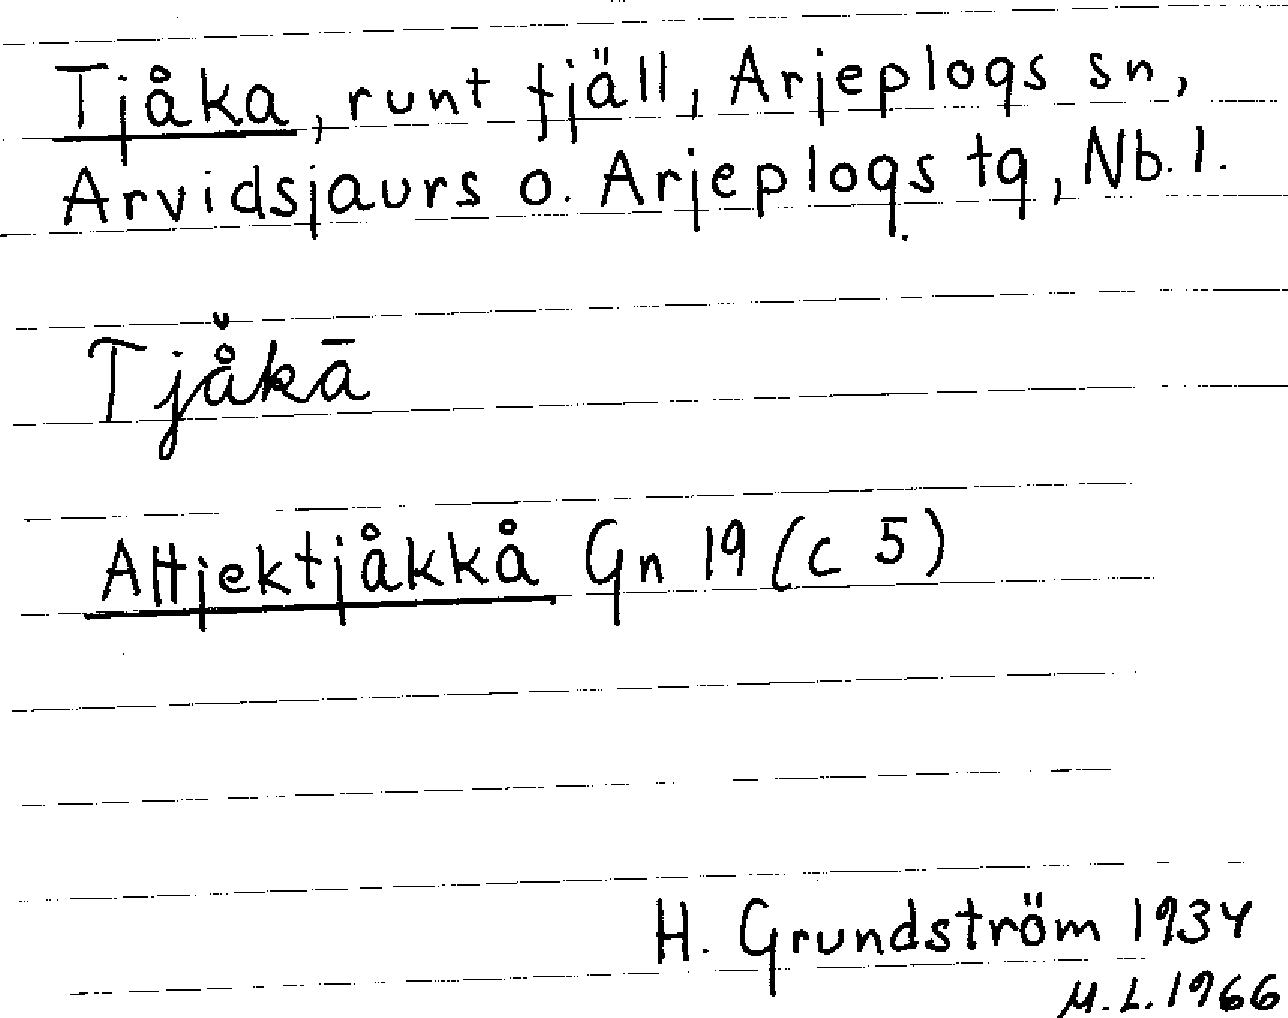 Tjåka, runt fjäll, Arjeplogs sn,
Arvidsjaurs o. Arjeplogs tg, Nb. l.
Tjå̆kā
Attjektjåkkå Gn 19 (c 5)
H. Grundström 1934
M.L. 1966